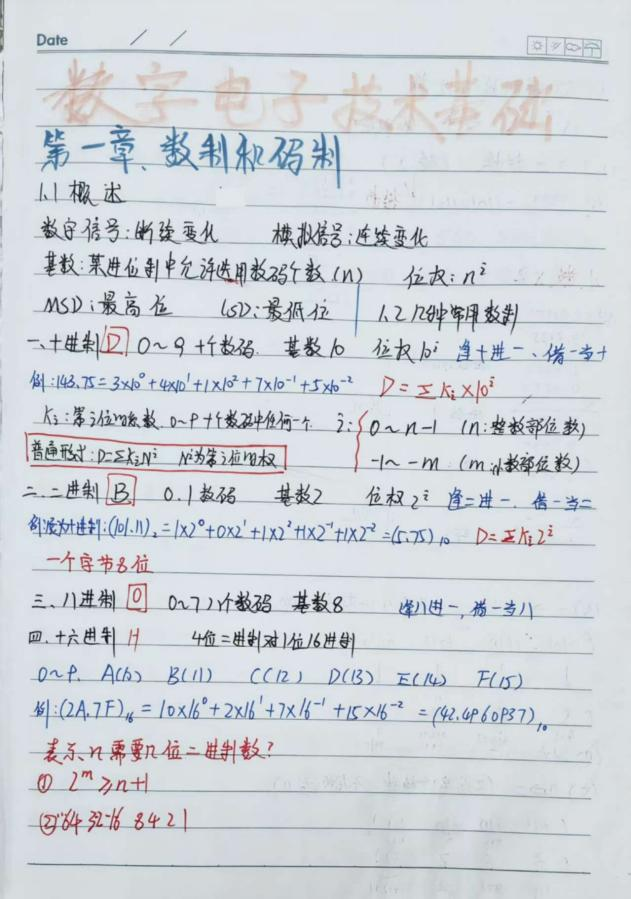 Date / /
数字电子技术基础
第一章、数制和码制
1.1 概述
数字信号:断续变化 模拟信号:连续变化
基数:某进位制中允许选用数码个数(n) 位权:nⁱ
MSD:最高位 LSD:最低位 1.2 几种常用数制
一、十进制 D 0~9 十个数码. 基数10 位权10ⁱ 逢十进一、借一当十
例:143.75=3×10⁰+4×10¹+1×10²+7×10⁻¹+5×10⁻² D=ΣKᵢ×10ⁱ
Kᵢ:第i位的系数. 0~9十个数码中任何一个 i: 0~n-1 (n:整数部位数)
普遍形式:D=ΣKᵢNⁱ Nⁱ为第i位的权 -1~-m (m:小数部位数)
二.二进制 B 0.1数码 基数2 位权2ⁱ 逢二进一. 借一当二
例:为十进制:(101.11)₂=1×2⁰+0×2¹+1×2²+1×2⁻¹+1×2⁻²=(5.75)₁₀ D=ΣKᵢ2ⁱ
一个字节8位
三、八进制 O 0~7 八个数码 基数8 逢八进一,借一当八
四.十六进制 H 4位二进制对1位16进制
0~9. A(10) B(11) C(12) D(13) E(14) F(15)
例:(2A.7F)₁₆=10×16⁰+2×16¹+7×16⁻¹+15×16⁻²=(42.4960937)₁₀
表示n需要几位二进制数?
① 2ᵐ≥n+1
② 64 32 16 8 4 2 1